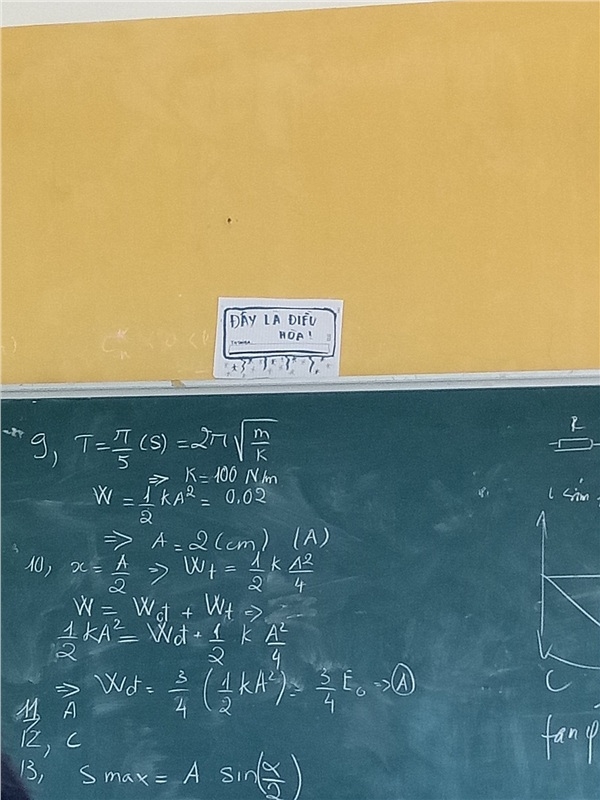 ĐÂY LÀ ĐIỀU
HÒA!
9, T = π/5 (s) = 2π√(m/k)
=> K = 100 N/m
W = 1/2 kA² = 0,02
=> A = 2 (cm) (A)
10, x = A/2 => Wt = 1/2 k A²/4
W = Wđ + Wt =>
1/2 kA² = Wđ + 1/2 k A²/4
=> Wđ = 3/4 (1/2 kA²) = 3/4 E₀ => A
11 A
12, C
13, Smax = A sin(α/2)
R
C
tan φ